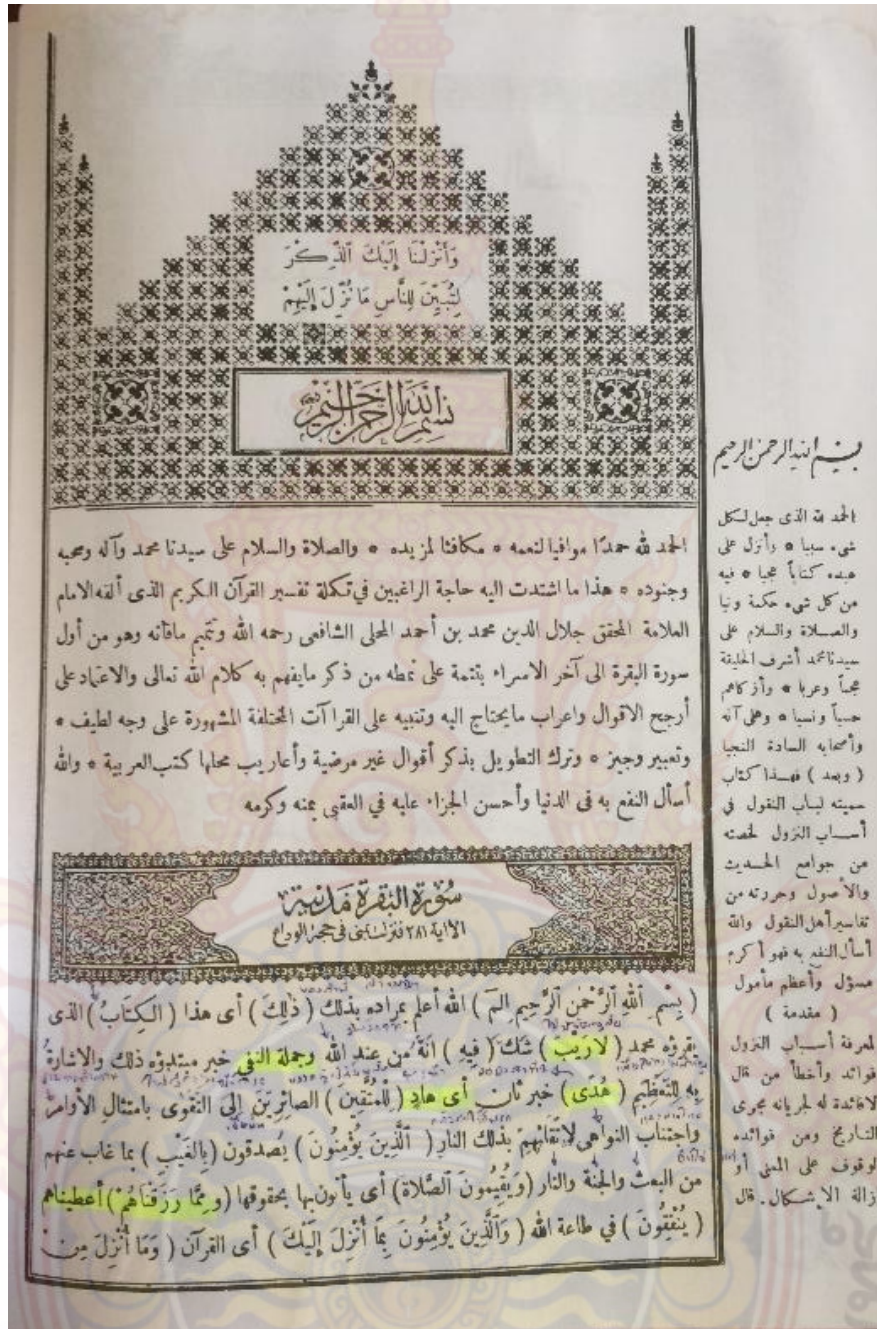 وَأَنْزَلْنَا إِلَيْكَ ٱلذِّكْرَ
لِتُبَيِّنَ لِلنَّاسِ مَا نُزِّلَ إِلَيْهِمْ
بسم الله الرحمن الرحيم
الحمد لله حمدًا موافيا لنعمه * مكافئا لمزيده * والصلاة والسلام على سيدنا محمد وآله وصحبه
وجنوده * هذا ما اشتدت اليه حاجة الراغبين في تكملة تفسير القرآن الكريم الذى ألفه الامام
العلامة المحقق جلال الدين محمد بن أحمد المحلى الشافعى رحمه الله وتتميم مافاته وهو من أول
سورة البقرة الى آخر الاسراء بتتمة على نمطه من ذكر مايفهم به كلام الله تعالى والاعتماد على
أرجح الاقوال واعراب مايحتاج اليه وتنبيه على القراآت المختلفة المشهورة على وجه لطيف *
وتعبير وجيز * وترك التطويل بذكر أقوال غير مرضية وأعاريب محلها كتب العربية * والله
أسأل النفع به فى الدنيا وأحسن الجزاء عليه في العقبى بمنه وكرمه
سُورة البقرة مَدنية
الا اية ٢٨١ فنزلت بمنى فى حجة الوداع
( بِسْمِ ٱللهِ ٱلرَّحْمٰنِ ٱلرَّحِيمِ الم ) الله أعلم بمراده بذلك ( ذٰلِكَ ) أى هذا ( الْكِتَابُ ) الذى
يقرؤه محمد ( لَا رَيْبَ ) شك ( فِيهِ ) أنه من عند الله وجملة النفي خبر مبتدؤه ذلك والاشارة
به للتعظيم ( هُدًى ) خبر ثان أى هاد ( لِلْمُتَّقِينَ ) الصائرين إلى التقوى بامتثال الأوامر
واجتناب النواهى لاتقائهم بذلك النار ( ٱلَّذِينَ يُؤْمِنُونَ ) يصدقون ( بِالْغَيْبِ ) بما غاب عنهم
من البعث والجنة والنار ( وَيُقِيمُونَ ٱلصَّلَاةَ ) أى يأتون بها بحقوقها ( وَمِمَّا رَزَقْنَاهُمْ ) أعطيناهم
( يُنْفِقُونَ ) في طاعة الله ( وَٱلَّذِينَ يُؤْمِنُونَ بِمَا أُنْزِلَ إِلَيْكَ ) أى القرآن ( وَمَا أُنْزِلَ مِنْ
بسم الله الرحمن الرحيم
الحمد لله الذى جعل لكل
شىء سببا * وأنزل على
عبده كتاباً عجبا * فيه
من كل شىء حكمة ونبا
والصلاة والسلام على
سيدنا محمد أشرف الخليقة
عجماً وعربا * وأزكاهم
حسباً ونسبا * وعلى آله
وأصحابه السادة النجبا
( وبعد ) فهذا كتاب
سميته لباب النقول في
أسباب النزول لخصته
من جوامع الحديث
والأصول وحررته من
تفاسير أهل النقول والله
أسأل النفع به فهو أكرم
مسؤل وأعظم مأمول
( مقدمة )
لمعرفة أسباب النزول
فوائد وأخطأ من قال
لافائدة له لجريانه مجرى
التاريخ ومن فوائده
لوقوف على المعنى أو
زالة الإشكال . قال